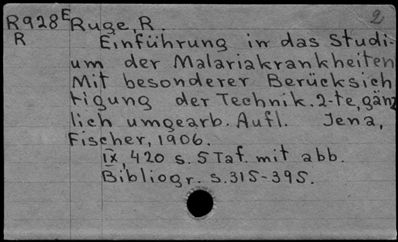 2
R928E Ruge, R.
R Einführung in das Studi-
um der Malariakrankheiten
Mit besonderer Berücksich
tigung der Technik. 2-te, gänz
lich umgearb. Aufl. Jena,
Fischer, 1906.
IX, 420 s. 5 Taf. mit abb.
Bibliogr. s. 315-395.